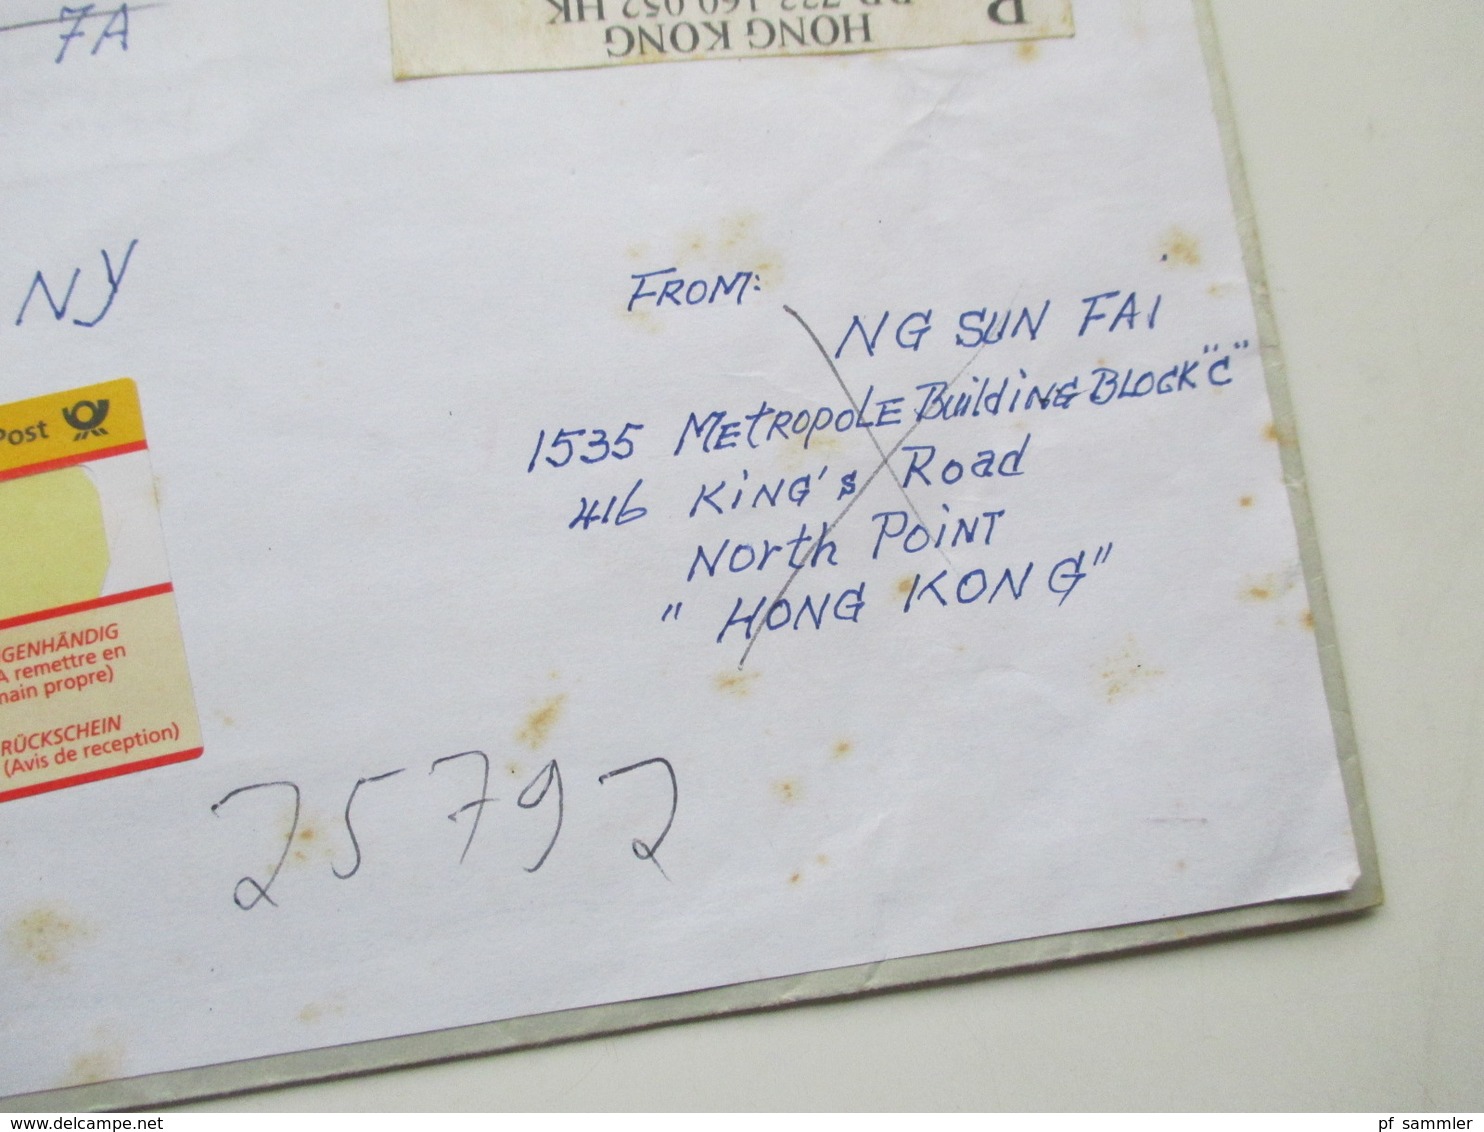 7A
HONG KONG
R
RR 722 160 052 HK
NY
FROM:
NG SUN FAI
1535 METROPOLE Building BLOCK "C"
416 KiNG's Road
North PoiNT
"HONG KONG"
Post
GENHÄNDIG
A remettre en
main propre)
RÜCKSCHEIN
(Avis de reception)
25792
pf_sammler
www.delcampe.net